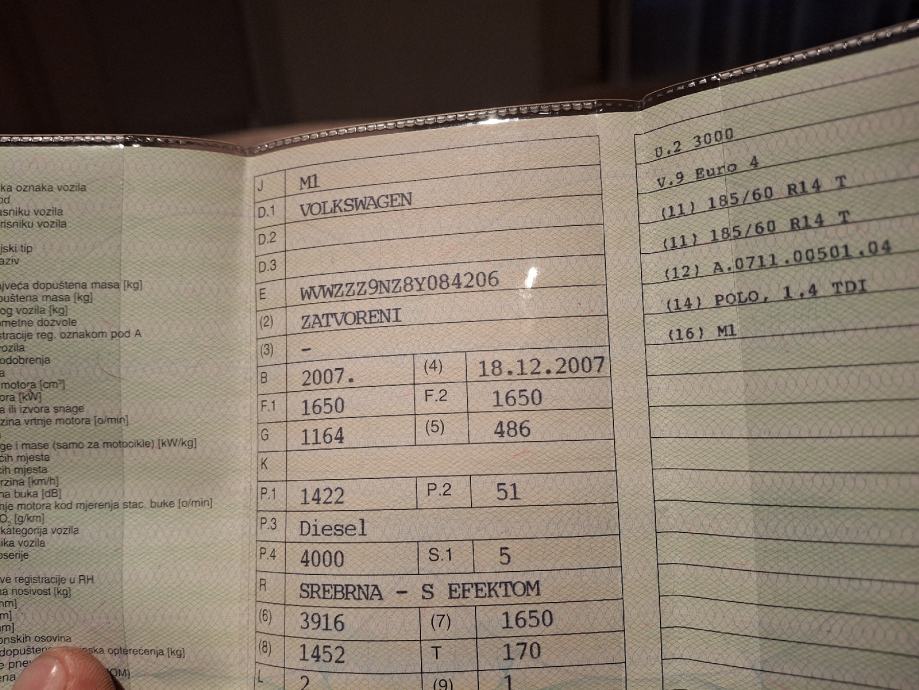 ka oznaka vozila
od
asniku vozila
risniku vozila
jski tip
aziv
jveća dopuštena masa [kg]
puštena masa [kg]
og vozila [kg]
ometne dozvole
stracije reg. oznakom pod A
vozila
odobrenja
a
motora [cm³]
ora [kW]
a ili izvora snage
zina vrtnje motora [o/min]
ge i mase (samo za motocikle) [kW/kg]
ćih mjesta
cih mjesta
rzina [km/h]
na buka [dB]
nje motora kod mjerenja stac. buke [o/min]
O₂ [g/km]
kategorija vozila
ika vozila
oserije
ve registracije u RH
na nosivost [kg]
mm]
m]
m]
onskih osovina
dopušten ska opterećenja [kg]
e pne
ena OM)
J M1
D.1 VOLKSWAGEN
D.2
D.3
E WVWZZZ9NZ8Y084206
(2) ZATVORENI
(3) –
B 2007. (4) 18.12.2007
F.1 1650 F.2 1650
G 1164 (5) 486
K
P.1 1422 P.2 51
P.3 Diesel
P.4 4000 S.1 5
R SREBRNA - S EFEKTOM
(6) 3916 (7) 1650
(8) 1452 T 170
L 2 (9) 1
U.2 3000
V.9 Euro 4
(11) 185/60 R14 T
(11) 185/60 R14 T
(12) A.0711.00501.04
(14) POLO, 1.4 TDI
(16) M1